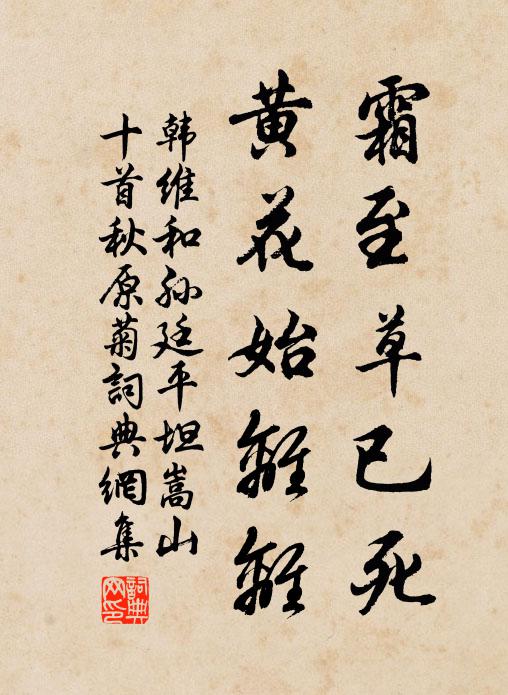 霜至草已死
黄花始離離
韩維和孙廷平坦嵩山
十首秋原菊詞典網集
詞典网印